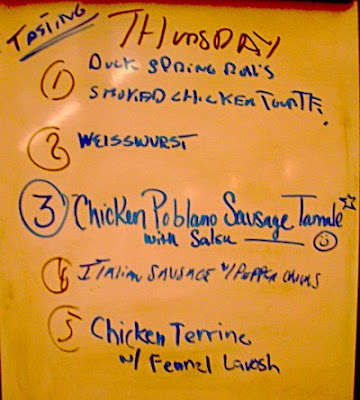 TASTING
THURSDAY
① DUCK SPRING ROLLS
SMOKED CHICKEN TOURTE
② WEISSWURST
③ Chicken Poblano Sausage Tamale ☆
with Salsa
④ ITALIAN SAUSAGE W/ PEPPER ONIONS
⑤ Chicken Terrine
w/ Fennel Lavosh